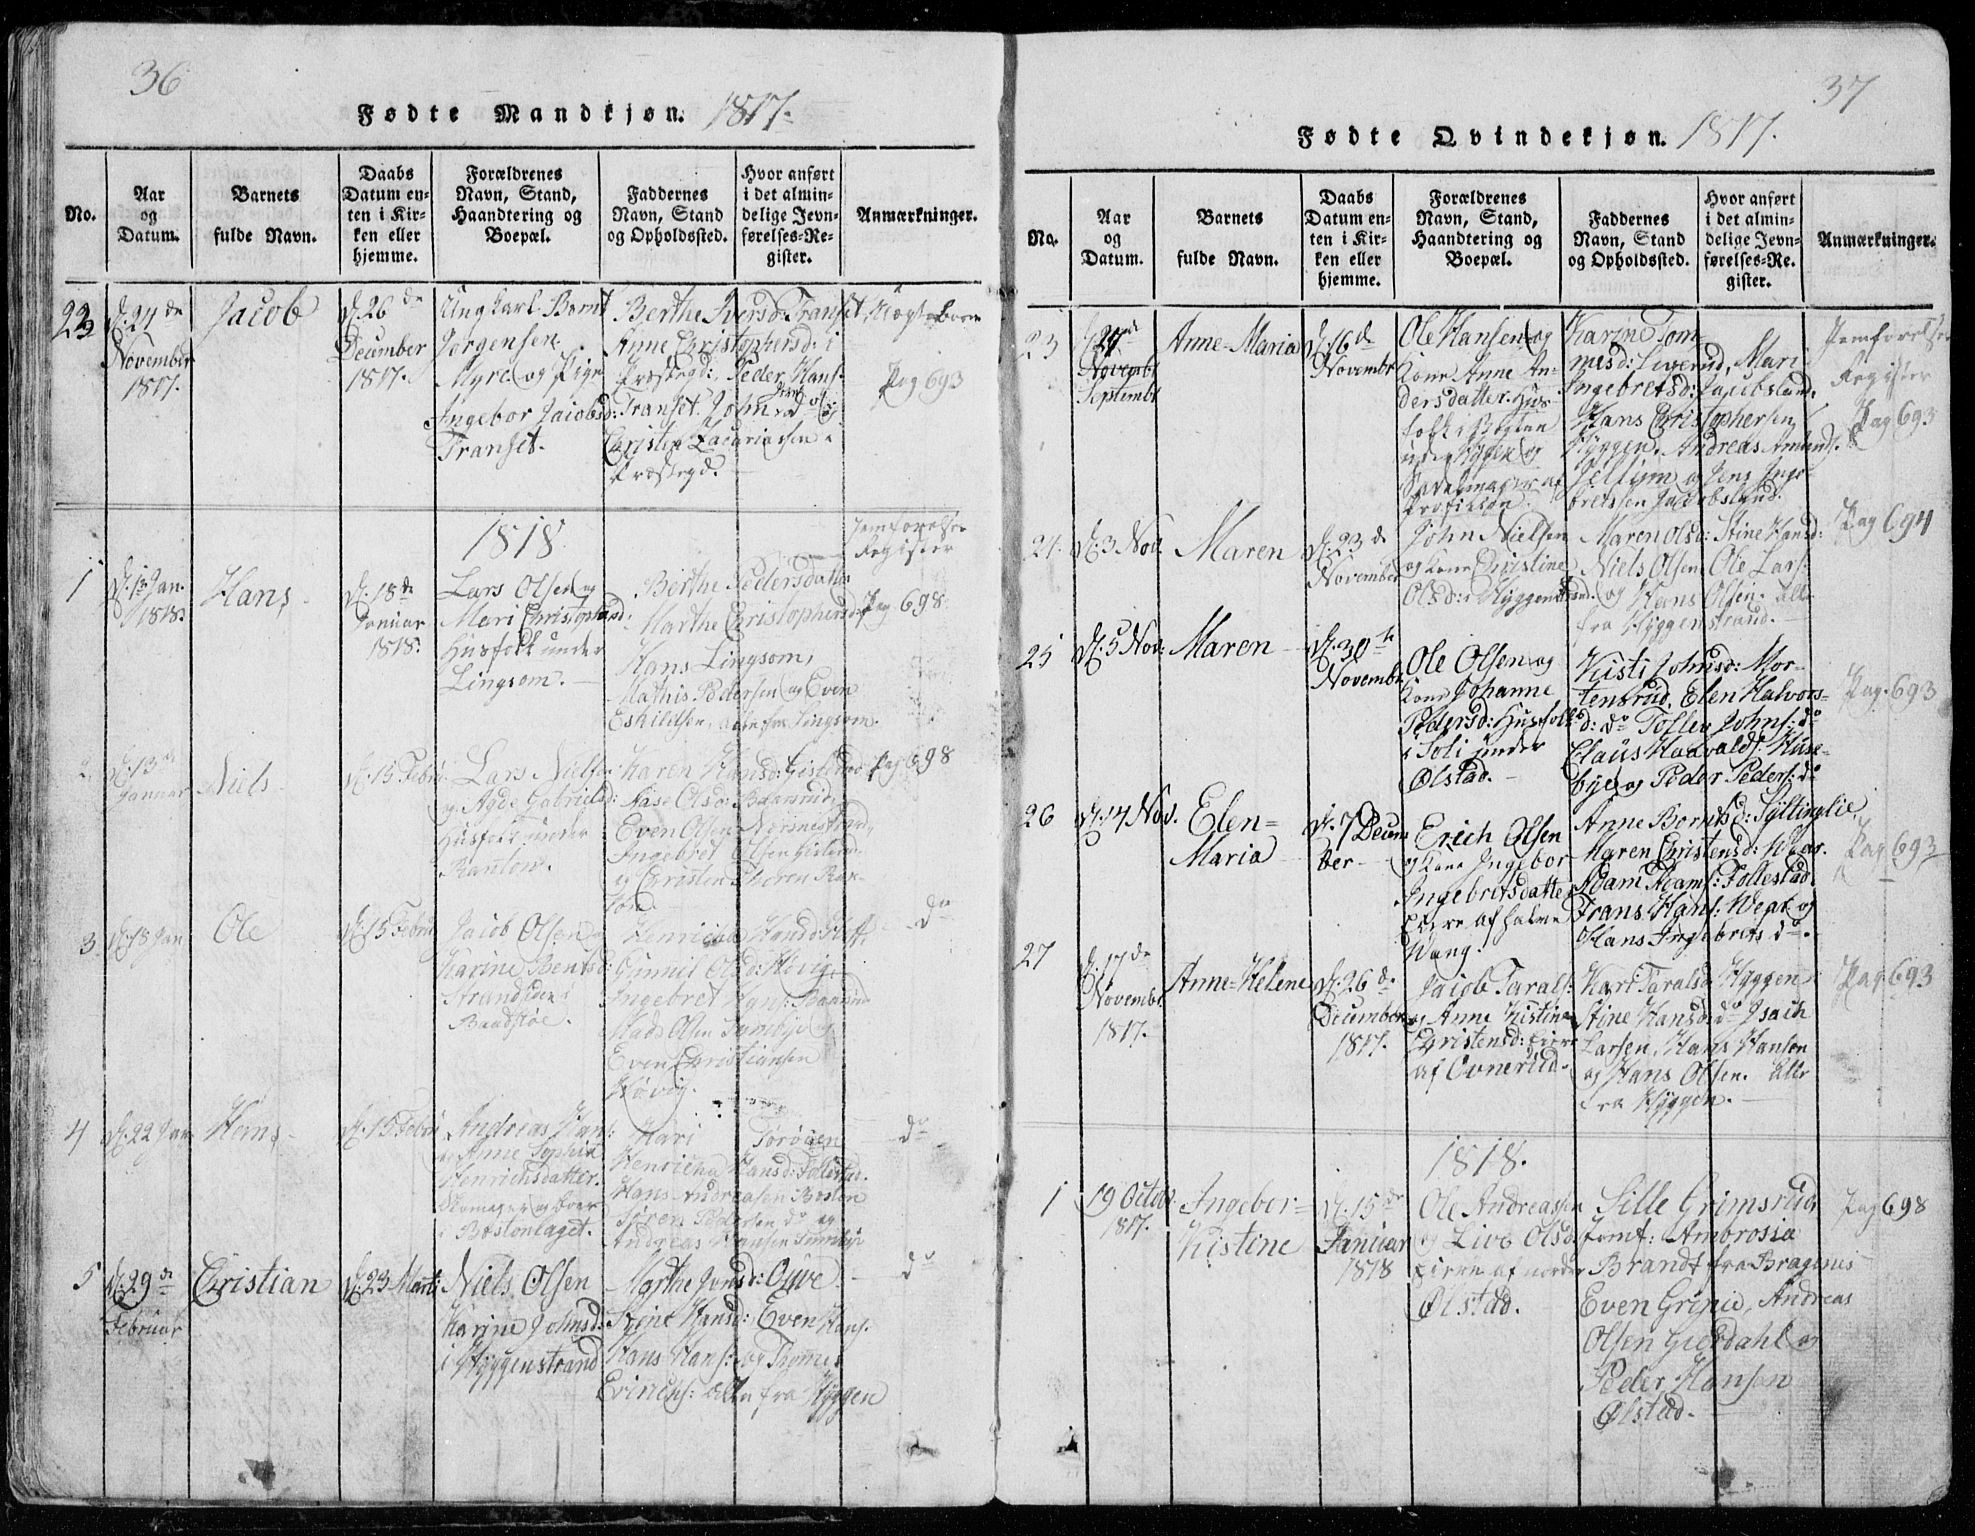 36
Fødte Mandkjøn. 1817.
No.
Aar
og
Datum.
Barnets
fulde Navn.
Daabs
Datum en-
ten i Kir-
ken eller
hjemme.
Forældrenes
Navn, Stand,
Haandtering og
Boepæl.
Faddernes
Navn, Stand
og Opholdssted.
Hvor anført
i det almin-
delige Jevn-
førelses-Re-
gister.
Anmærkninger.
22
d. 24de
November
1817.
Jacob
d. 26de
December
1817.
Ungkarl Bernt
Jørgensen
Myre og Pige
Ingebor Jacobsd:
Transet.
Berthe Iversd: Transet,
Anne Christophersd: i
Præstegd:, Peder Hans:
Transet, John
Christen Zacariassen i
Præstegd.
Pag 693
1818
Jemførelse
Register
1
d. 13 Jan.
1818.
Hans
d. 18de
Januar
1818.
Lars Olsen og
Mari Christophersd:
Husfolk under
Lingsom.
Berthe Pedersdatter
Marthe Christophersd:
Hans Lingsom,
Mathis Pedersen og Even
Eskildsen, alle fra Lingsom
Pag 698
2
d. 13de
Januar
Niels
d. 15 Febr:
Lars Nielsen
og Agde Gabrielsd:
Husfolk under
Rantow.
Karen Hansd: Gisterud
Aase Olsd: Baarsrud,
Even Olsen Nærsnestrand,
Ingebret Olsen
og Christen
Pag 698
3
d. 18 Jan
Ole
d. 15 Febru
Jacob Olsen og
Karine Bentsd:
Strandsiden i
Baadstøe.
Henricha Hansd
Gunnil Olsd: Høvig
Ingebret
Mads Olsen
Even Christiansen
Høvig.
do
4
d. 22 Jan
Hans
d. 15 Febr
Andreas Hans:
og Anne Sophia
Henrichsdatter.
i Bostonlaget.
Mari Torødsen
Henricha Hansd: Follestad.
Hans Andreasen Bosten
Søren Pedersen do og
Andreas Hansen
do
5
d. 29de
Februar
Christian
d. 23 Marti
Niels Olsen
Karine Johnsd:
i Hyggenstrand
Marthe
Stine Hansd: Even Hans.
Hans Hans: og Thomes
Erichs: alle fra Hyggen
do
37
Fødte Qvindekjøn. 1817.
No.
Aar
og
Datum.
Barnets
fulde Navn.
Daabs
Datum en-
ten i Kir-
ken eller
hjemme.
Forældrenes
Navn, Stand,
Haandtering og
Boepæl.
Faddernes
Navn, Stand
og Opholdssted.
Hvor anført
i det almin-
delige Jevn-
førelses-Re-
gister.
Anmærkninger.
23
Novembr
Septembr
Anne-Maria
d. 16de
Novembr
Ole Hansen og
Kone Anne An-
dersdatter. Hus-
folk i
under Hyggen og
Sadelmager af
Profession.
Karine Tom-
mesd: Liverud, Mari
Ingebretsd: Jacobsland.
Hans Christophersen
Hyggen. Andreas
Jellum og Jens Inge-
bretssen Jacobsland.
Jemførelse
Register
Pag 693
24
d. 3 Nov.
Maren
d. 23de
November
John Nielsen
og Kone Christine
Olsd: i Hyggenstrand.
Maren Olsd: Stine Hansd:
Niels Olsen Ole Lars:
og Hans Olsen. Alle
fra Hyggenstrand.
Pag 694
25
d. 5 Nov:
Maren
d. 30te
Novembr
Ole Olsen og
Kone Johanne
Pedersd: Husfolk
i Soli under
Ølstad.
Kisti Johnsd: Mor-
tensrud, Elen Halvors-
d: do Tollev Johns: do
Claus Haavalds: Huse-
bye og Peder Peders: do
Pag. 693
26
d. 14 Nov.
Elen-
Maria
d. 7 Decem
ber
Erich Olsen
og Kone Ingebor
Ingebretsdatter
Eiere af halve
Wang.
Anne Berntsd: Syltinglie,
Maren Christensd:
Adam Adams: Follestad
Frans Hans: Weat og
Hans Ingebrets do.
Pag 693
27
d. 17de
Novembr
1817.
Anne-Helene
d. 26de
December
1817.
Jacob Tarals:
og Anne Kistine
Christensd: Eiere
af Ovnerud.
Kari Taralsd Hyggen
Stine Hansd: do Isach
Larsen, Hans Hansen
og Hans Olsen. Alle
fra Hyggen.
Pag 693
1818.
1
19 Octobr
1817.
Ingebor-
Kistine
d. 15de
Januar
1818
Ole Andreassen
og Live Olsd
Eiere af nordre
Ølstad.
Sille Grimsrud,
Jomf: Ambrosia
Brandt fra Bragenes
Even Gripid, Andreas
Olsen Gierdahl og
Peder Hansen
Ølstad.
Pag 698